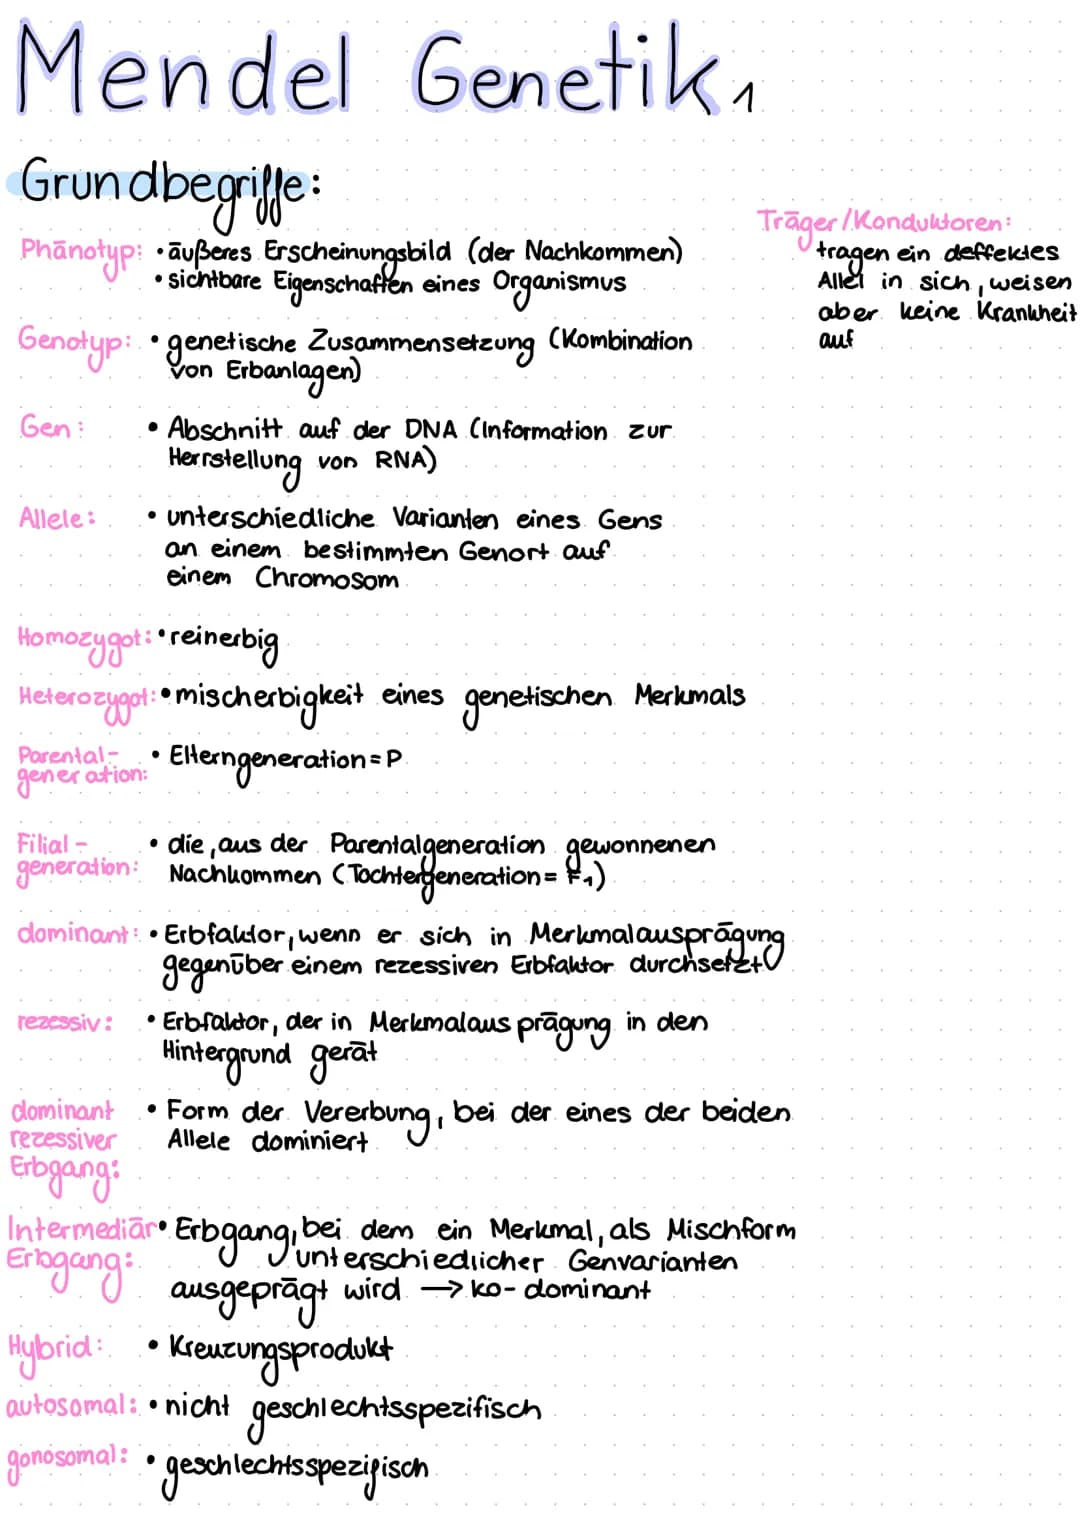 Mendel Genetik 1
Grundbegriffe:
Phänotyp: • äußeres Erscheinungsbild (der Nachkommen)
• sichtbare Eigenschaften eines Organismus
Träger/Konduktoren:
tragen ein deffektes
Allel in sich, weisen
aber keine Krankheit
auf
Genotyp: • genetische Zusammensetzung (Kombination
von Erbanlagen)
Gen: • Abschnitt auf der DNA (Information zur
Herrstellung von RNA)
Allele: • unterschiedliche Varianten eines Gens
an einem bestimmten Genort auf
einem Chromosom
Homozygot: • reinerbig
Heterozygot: • mischerbigkeit eines genetischen Merkmals
Parental-
generation: • Elterngeneration = P
Filial-
generation: • die, aus der Parentalgeneration gewonnenen
Nachkommen (Tochtergeneration = F1)
dominant: • Erbfaktor, wenn er sich in Merkmalausprägung
gegenüber einem rezessiven Erbfaktor durchsetzt
rezessiv: • Erbfaktor, der in Merkmalausprägung in den
Hintergrund gerät
dominant • Form der Vererbung, bei der eines der beiden
rezessiver Allele dominiert
Erbgang:
Intermediär • Erbgang, bei dem ein Merkmal, als Mischform
Erbgang: unterschiedlicher Genvarianten
ausgeprägt wird → ko-dominant
Hybrid: • Kreuzungsprodukt
autosomal: • nicht geschlechtsspezifisch
gonosomal: • geschlechtsspezifisch